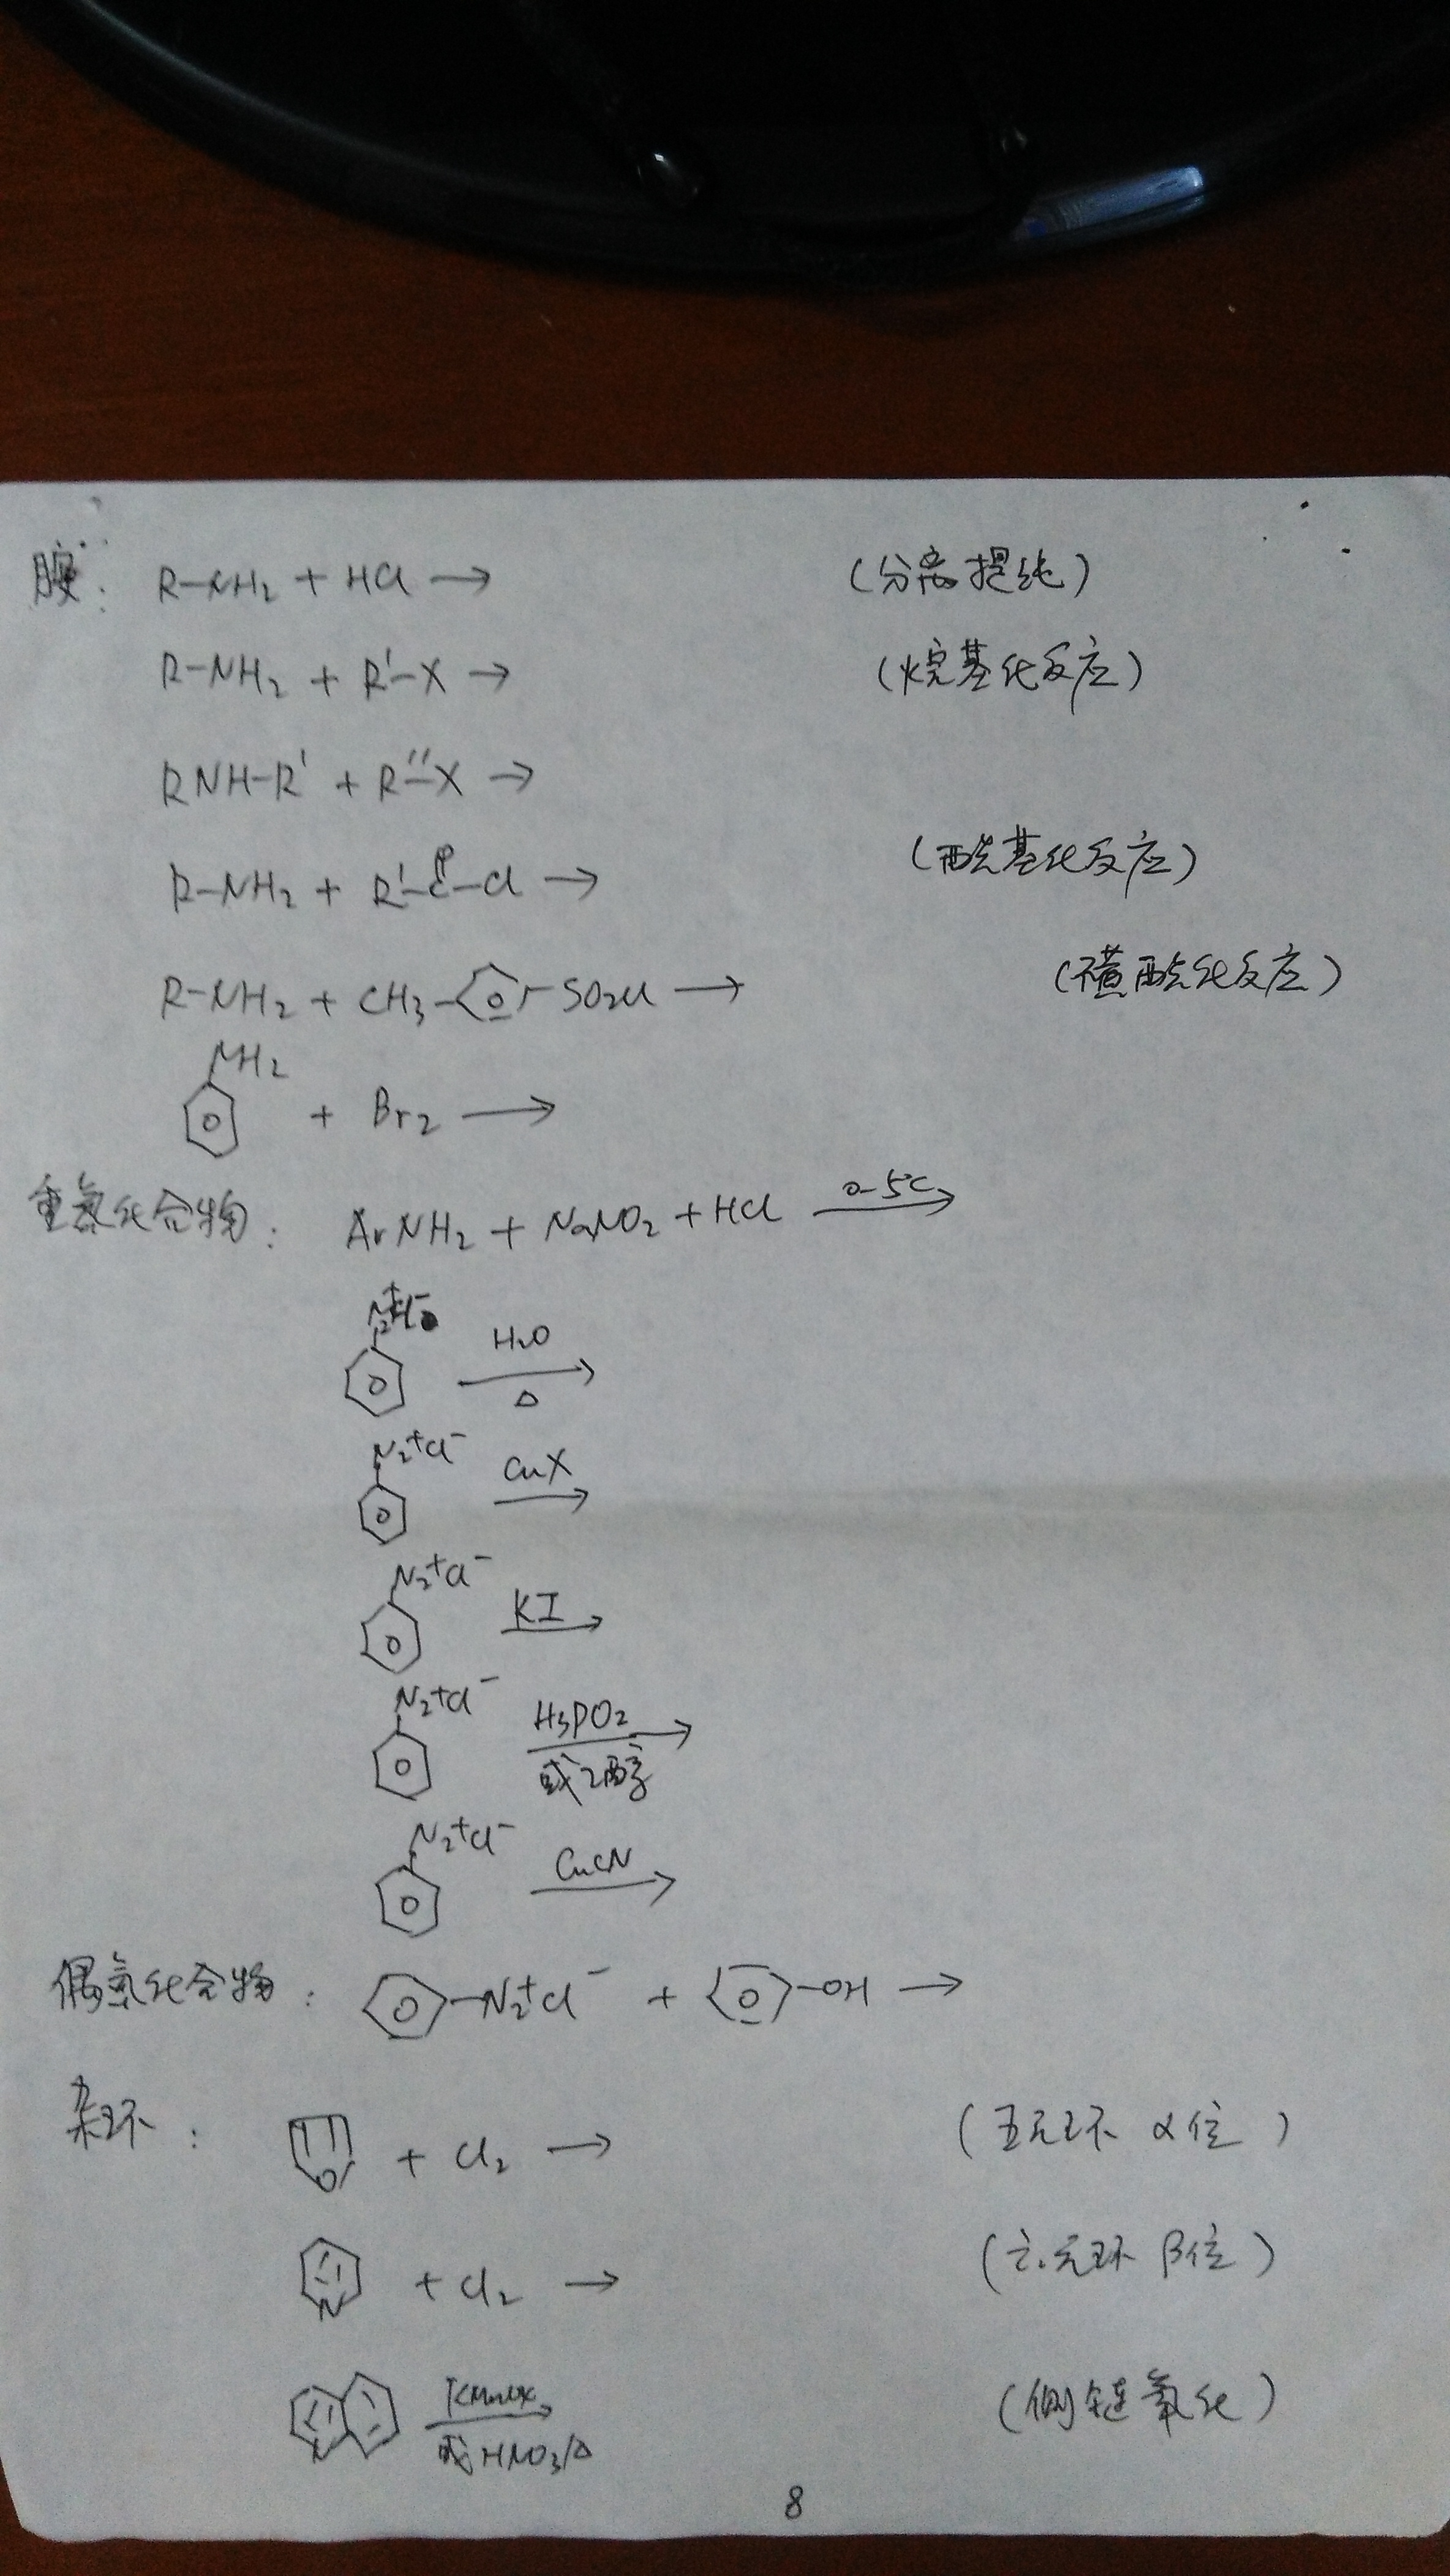 胺： R-NH2 + HCl → (分离提纯)
R-NH2 + R'-X → (烷基化反应)
RNH-R' + R''-X →
R-NH2 + R'-C(=O)-Cl → (酰基化反应)
R-NH2 + CH3--SO2Cl → (磺酰化反应)
NH2
+ Br2 →
重氮化合物： ArNH2 + NaNO2 + HCl 0-5℃ →
N2+Cl-
H2O → Δ
N2+Cl-
CuX →
N2+Cl-
KI →
N2+Cl-
H3PO2 → 或乙醇
N2+Cl-
CuCN →
偶氮化合物： -N2+Cl- + -OH →
杂环： O + Cl2 → (五元环 α位)
N + Cl2 → (六元环 β位)
N KMnO4 → 或HNO3/Δ (侧链氧化)
8